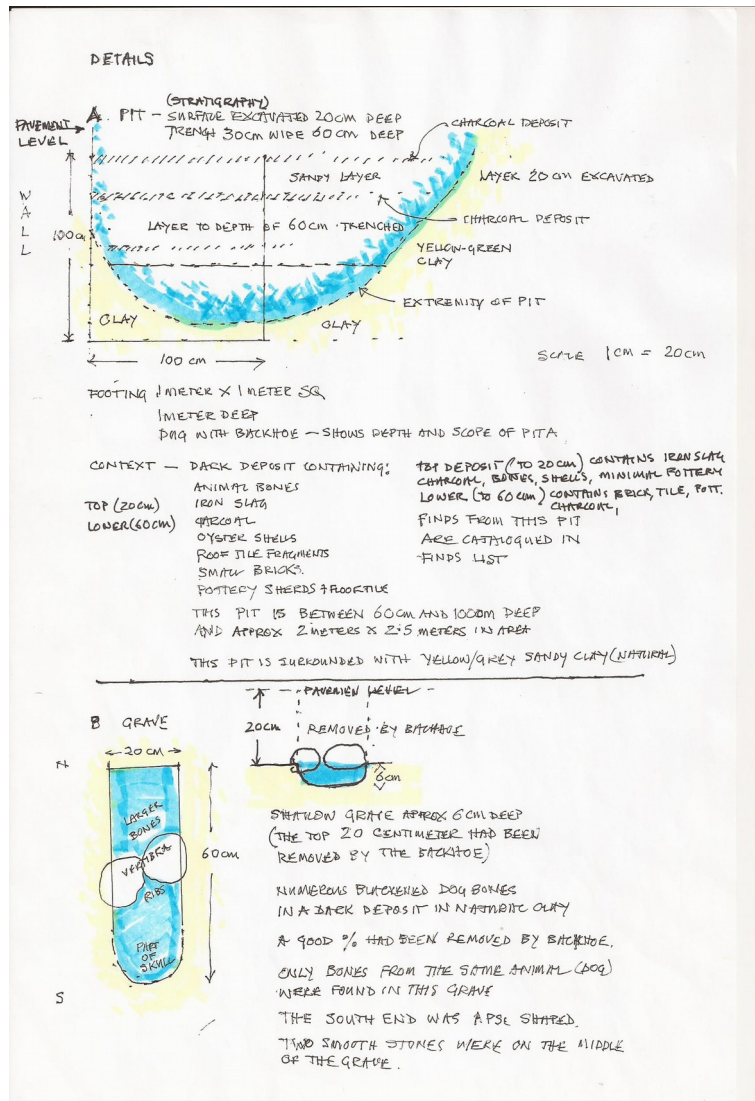 DETAILS
(STRATIGRAPHY)
A. PIT – SURFACE EXCAVATED 20CM DEEP
TRENCH 30CM WIDE 60CM DEEP
PAVEMENT LEVEL
CHARCOAL DEPOSIT
SANDY LAYER
LAYER 20CM EXCAVATED
WALL
CHARCOAL DEPOSIT
LAYER TO DEPTH OF 60CM TRENCHED
100
YELLOW-GREEN
CLAY
EXTREMITY OF PIT
CLAY
CLAY
100 CM
SCALE 1CM = 20CM
FOOTING 1METER X 1METER SQ
1METER DEEP
DUG WITH BACKHOE – SHOWS DEPTH AND SCOPE OF PIT A
CONTEXT – DARK DEPOSIT CONTAINING:
ANIMAL BONES
TOP (20CM) IRON SLAG
LOWER (60CM) CHARCOAL
OYSTER SHELLS
ROOF TILE FRAGMENTS
SMALL BRICKS.
POTTERY SHERDS + FLOOR TILE
TOP DEPOSIT (TO 20CM) CONTAINS IRON SLAG
CHARCOAL, BONES, SHELLS, MINIMAL POTTERY
LOWER (TO 60CM) CONTAINS BRICK, TILE, POTT.
CHARCOAL,
FINDS FROM THIS PIT
ARE CATALOGUED IN
FINDS LIST
THIS PIT IS BETWEEN 60CM AND 100CM DEEP
AND APPROX 2METERS X 2.5 METERS IN AREA
THIS PIT IS SURROUNDED WITH YELLOW/GREY SANDY CLAY (NATURAL)
B GRAVE
20CM
N
LARGER
BONES
VERTIBRA
RIBS
PART
OF
SKULL
60CM
S
PAVEMEN LEVEL
20CM
REMOVED BY BACKHOE
6CM
SHALLOW GRAVE APPROX 6CM DEEP
(THE TOP 20 CENTIMETER HAD BEEN
REMOVED BY THE BACKHOE)
NUMEROUS BLACKENED DOG BONES
IN A DARK DEPOSIT IN NATURAL CLAY
A GOOD % HAD BEEN REMOVED BY BACKHOE.
ONLY BONES FROM THE SAME ANIMAL (DOG)
WERE FOUND IN THIS GRAVE
THE SOUTH END WAS APSE SHAPED.
TWO SMOOTH STONES WERE ON THE MIDDLE
OF THE GRAVE.